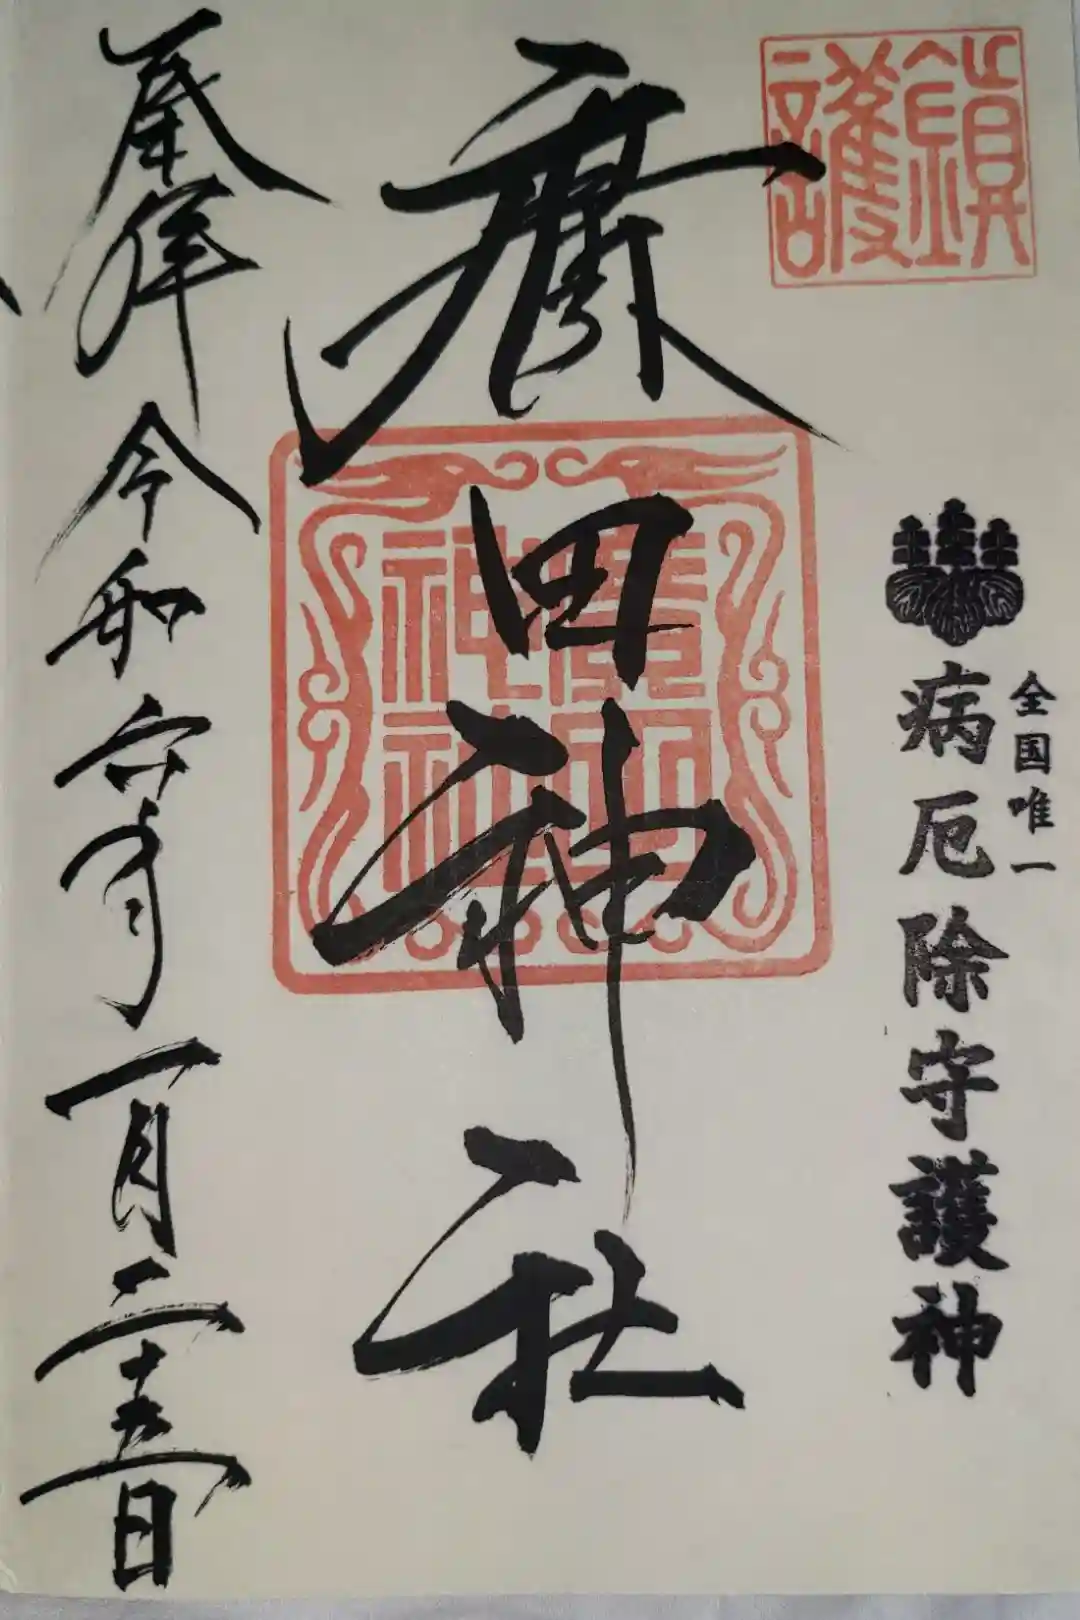 鎮護
全国唯一
病厄除守護神
廣田神社
廣田
神社
奉拝 令和六年一月二十五日